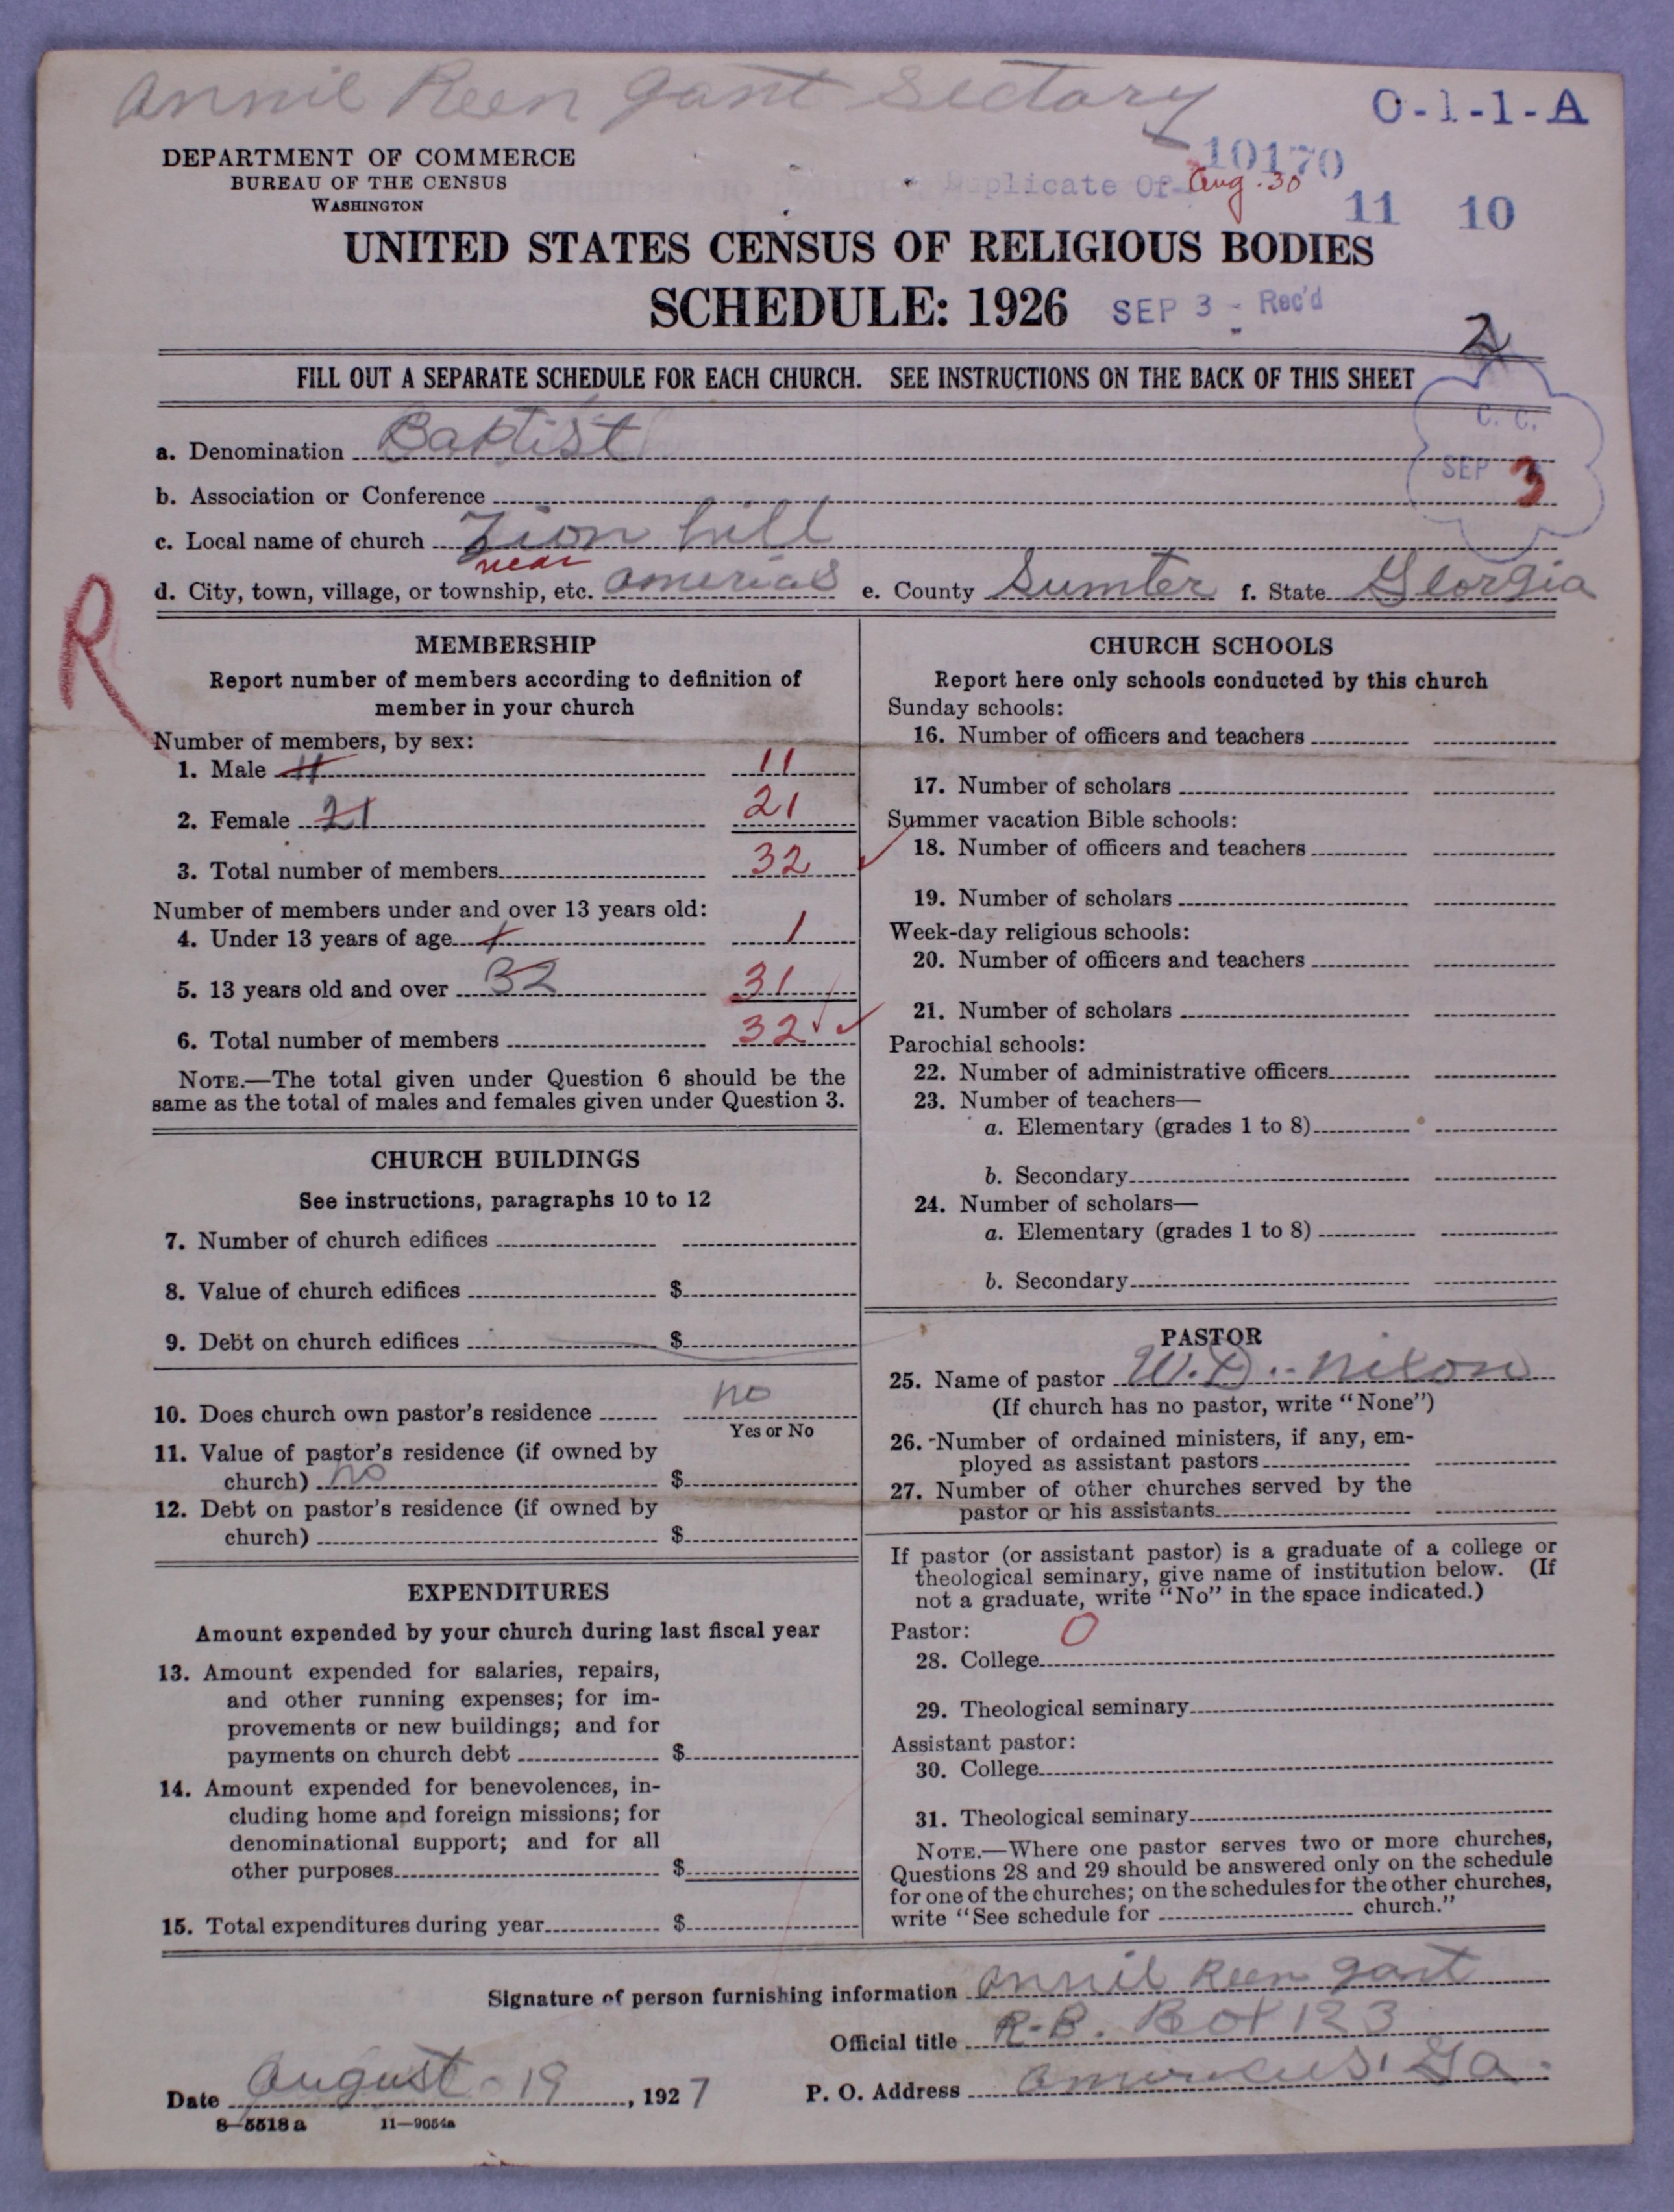 Annil Reen gant Sectary
O-1-1-A
DEPARTMENT OF COMMERCE
BUREAU OF THE CENSUS
WASHINGTON
10170
Duplicate Of Aug. 30
11 10
UNITED STATES CENSUS OF RELIGIOUS BODIES
SCHEDULE: 1926
SEP 3 - Rec'd
2
FILL OUT A SEPARATE SCHEDULE FOR EACH CHURCH. SEE INSTRUCTIONS ON THE BACK OF THIS SHEET
C. C.
SEP 3
a. Denomination Baptist
b. Association or Conference
c. Local name of church Zion hill
near
d. City, town, village, or township, etc. Americas e. County Sumter f. State Georgia
R
MEMBERSHIP
Report number of members according to definition of
member in your church
Number of members, by sex:
1. Male 11 11
2. Female 21 21
3. Total number of members 32
Number of members under and over 13 years old:
4. Under 13 years of age 1 1
5. 13 years old and over 32 31
6. Total number of members 32
NOTE.—The total given under Question 6 should be the
same as the total of males and females given under Question 3.
CHURCH BUILDINGS
See instructions, paragraphs 10 to 12
7. Number of church edifices
8. Value of church edifices $
9. Debt on church edifices $
10. Does church own pastor's residence no
Yes or No
11. Value of pastor's residence (if owned by
church) no $
12. Debt on pastor's residence (if owned by
church) $
EXPENDITURES
Amount expended by your church during last fiscal year
13. Amount expended for salaries, repairs,
and other running expenses; for im-
provements or new buildings; and for
payments on church debt $
14. Amount expended for benevolences, in-
cluding home and foreign missions; for
denominational support; and for all
other purposes $
15. Total expenditures during year $
CHURCH SCHOOLS
Report here only schools conducted by this church
Sunday schools:
16. Number of officers and teachers
17. Number of scholars
Summer vacation Bible schools:
18. Number of officers and teachers
19. Number of scholars
Week-day religious schools:
20. Number of officers and teachers
21. Number of scholars
Parochial schools:
22. Number of administrative officers
23. Number of teachers—
a. Elementary (grades 1 to 8)
b. Secondary
24. Number of scholars—
a. Elementary (grades 1 to 8)
b. Secondary
PASTOR
25. Name of pastor W.D. Nixon
(If church has no pastor, write "None")
26. Number of ordained ministers, if any, em-
ployed as assistant pastors
27. Number of other churches served by the
pastor or his assistants
If pastor (or assistant pastor) is a graduate of a college or
theological seminary, give name of institution below. (If
not a graduate, write "No" in the space indicated.)
Pastor: 0
28. College
29. Theological seminary
Assistant pastor:
30. College
31. Theological seminary
NOTE.—Where one pastor serves two or more churches,
Questions 28 and 29 should be answered only on the schedule
for one of the churches; on the schedules for the other churches,
write "See schedule for church."
Signature of person furnishing information Annil Reen gant
Official title R-B. Box 123
Date August - 19, 1927 P. O. Address Americus, Ga.
8—5518 a 11—9054a